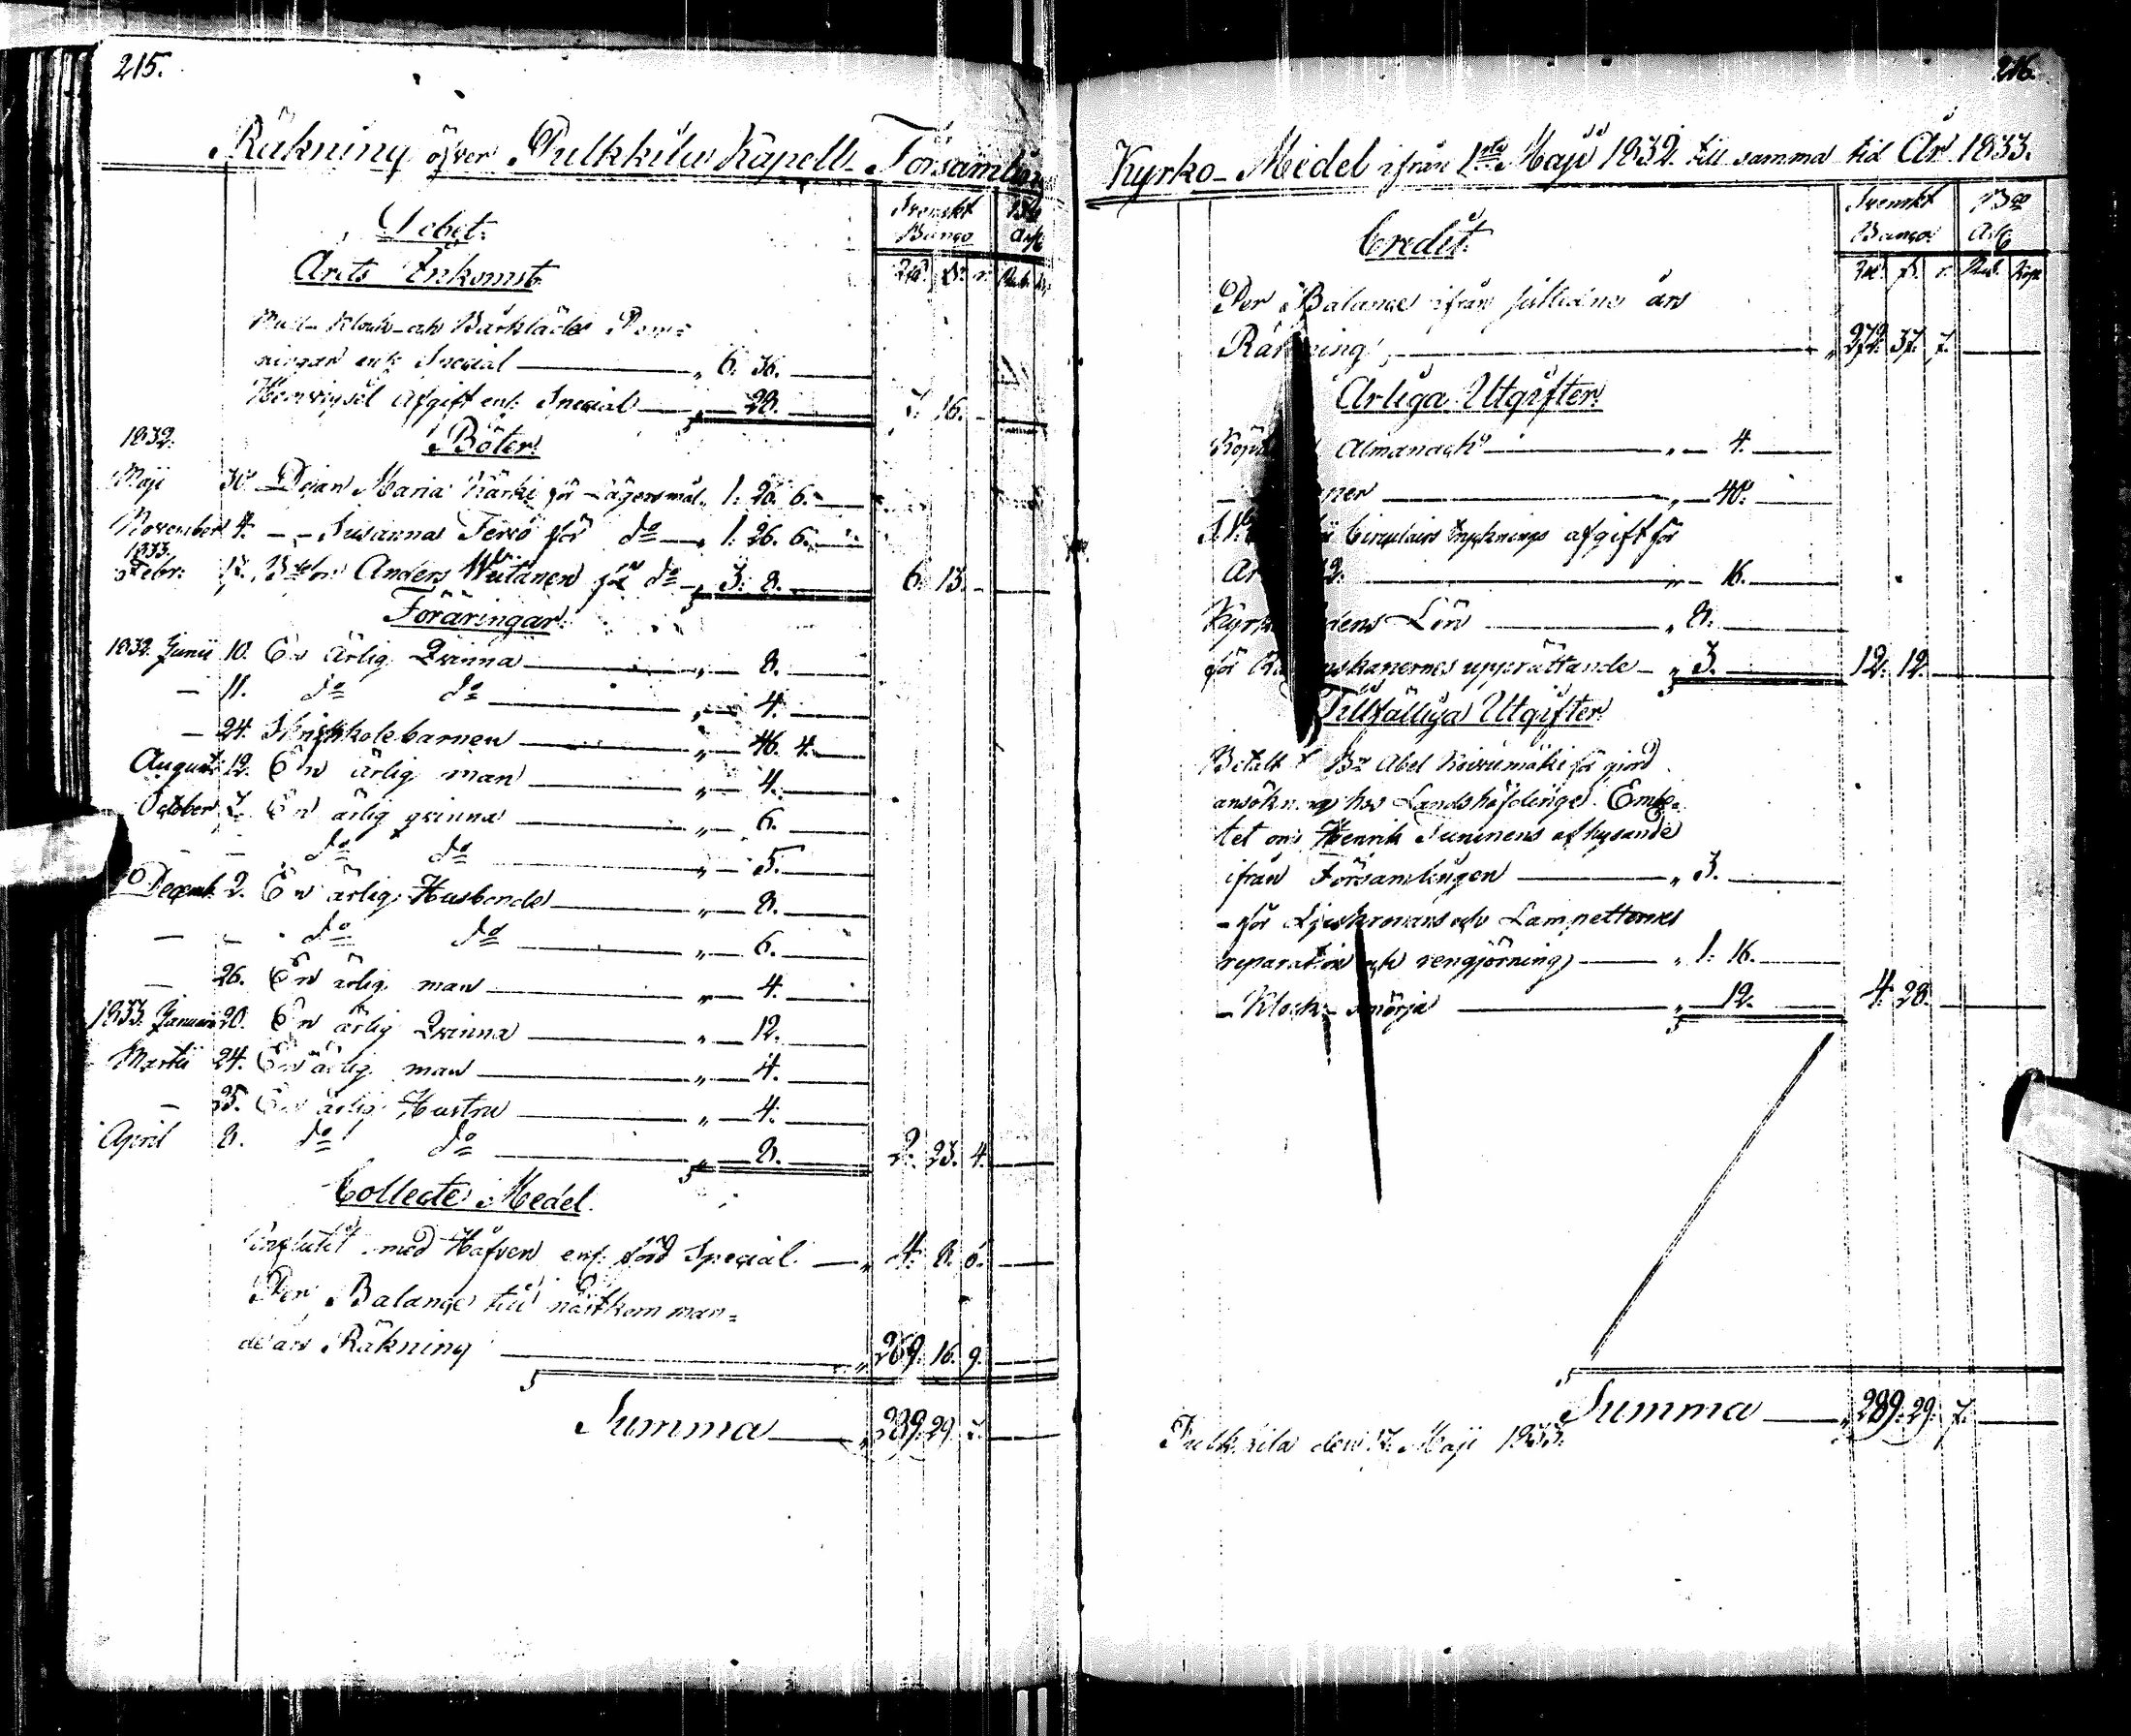 215.
Räkning öfver Pulkkila Kapell-Församlin
Debet.
Svenskt Banco
Bco Ass
Rd. s. r. Rub. k.
Årets Inkomst
Mull- Klock- och Bårkläde Pen-
ningar enl: Special " 6. 36.
Hemvigsel Afgift enl: Special " 28. 7. 16. -
1832. Böter.
Maji 30. Pigan Maria Kärki för Lägersmål " 1. 26. 6.
November 4. - - Susanna Tervo för do " 1. 26. 6.
1833.
Febr: 17. Anders Wutanen för do " 3. 8. 6. 13. -
Föräringar.
1832. Junii 10. En ärlig Qvinna " 8.
- 11. do do " 4.
- 24. Skriftskolebarnen " 46. 4.
August 12. En ärlig man " 4.
October 7. En ärlig qvinna " 6.
- - do do " 5.
Decemb. 2. En ärlig Husbonde " 8.
- - do do " 6.
- 26. En ärlig man " 4.
1833. Januari 20. En ärlig Qvinna " 12.
Martii 24. En ärlig man " 4.
- 25. En ärlig Hustru " 4.
April 8. do do " 8. 2. 23. 4.
Collecte Medel.
Influtit med Håfven enl. förd Special. " 4. 8. 6.
Per Balance till nästkomman-
de års Räkning " 269. 16. 9.
Summa " 289. 29. 7.
216.
Kyrko-Medel ifrån 1sta Maji 1832. till samma tid År 1833.
Credit.
Svenskt Banco.
Bco Ass
Rd. s. r. Rub. Kop.
Per Balance ifrån sistledne års
Räkning, " 272. 37. 7.
Årliga Utgifter.
Almanach " 4.
" 40.
Circulairs trycknings afgift för
År " 16.
Lön " 8.
för upprättande " 3. 12. 12.
Tillfälliga Utgifter.
Betalt t Bn Abel Koivumäki för gjord
ansökning hos Landshöfdinge Embe-
tet om Henrik Juninens afhysande
ifrån Församlingen " 3.
- för Ljuskronans och Lampetternes
reparation och rengjörning " 1. 16.
- Klock-smörja " 12. 4. 28.
Summa " 289. 29. 7.
Pulkkila den 17. Maji 1833.